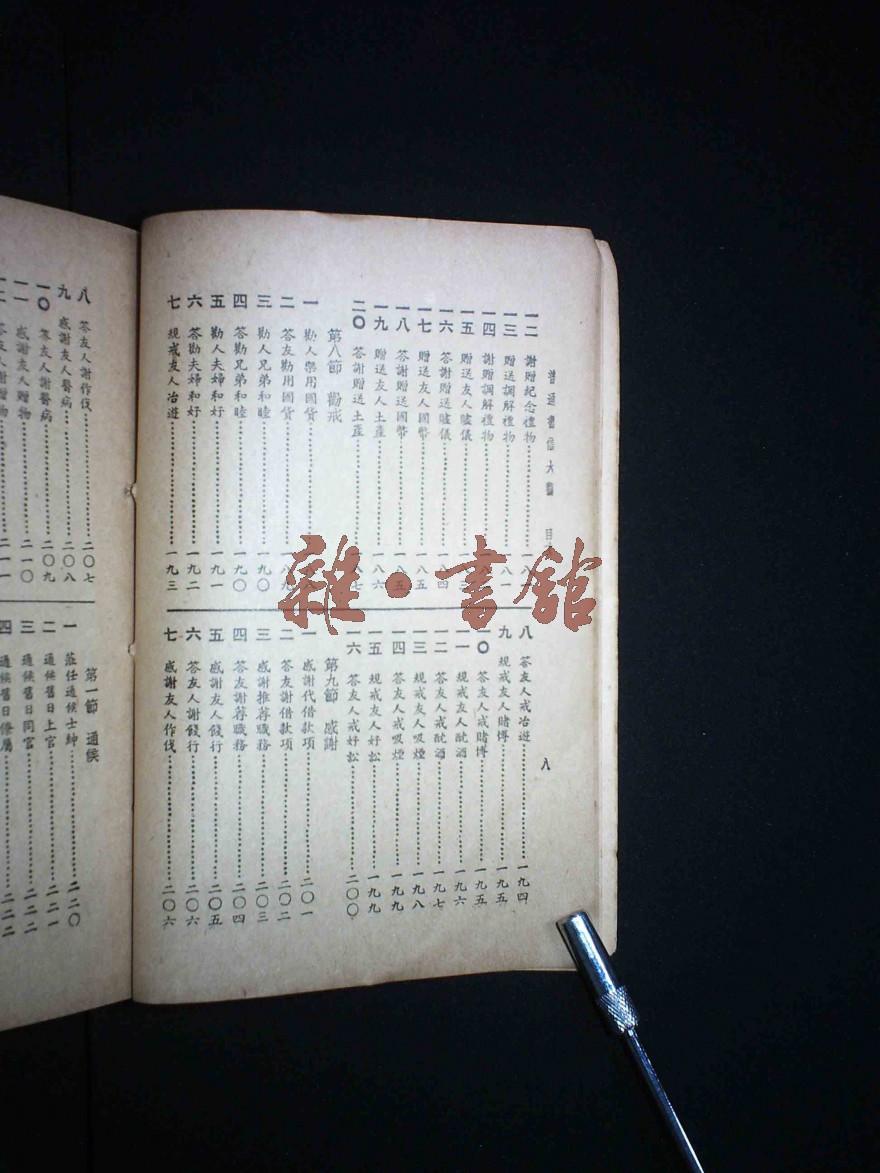 普通書信大觀 目
八
一二 謝贈紀念禮物
一三 贈送調解禮物
一四 謝贈調解禮物
一五 贈送友人贐儀
一六 答謝贈送贐儀 一八四
一七 贈送友人國幣 一八五
一八 答謝贈送國幣 一八五
一九 贈送友人土產 一八六
二〇 答謝贈送土產 一八七
第八節 勸戒
一 勸人樂用國貨
二 答友勸用國貨 一八九
三 勸人兄弟和睦 一九〇
四 答勸兄弟和睦 一九〇
五 勸人夫婦和好 一九一
六 答勸夫婦和好 一九二
七 規戒友人冶遊 一九三
八 答友人戒冶遊 一九四
九 規戒友人賭博 一九五
一〇 答友人戒賭博 一九五
一一 規戒友人酖酒 一九六
一二 答友人戒酖酒 一九七
一三 規戒友人吸煙 一九八
一四 答友人戒吸煙 一九九
一五 規戒友人好訟 一九九
一六 答友人戒好訟 二〇〇
第九節 感謝
一 感謝代借款項 二〇一
二 答友謝借款項 二〇二
三 感謝推荐職務 二〇三
四 答友謝荐職務 二〇四
五 感謝友人餞行 二〇五
六 答友人謝餞行 二〇六
七 感謝友人作伐 二〇六
八 答友人謝作伐 二〇七
九 感謝友人醫病 二〇八
一〇 答友人謝醫病 二〇九
一一 感謝友人贈物 二一〇
一二 答友人謝贈物 二一一
第一節 通候
一 蒞任通候士紳 二二〇
二 通候舊日上官 二二一
三 通候舊日同官 二二二
四 通候舊日僚屬 二二二
雜·書館